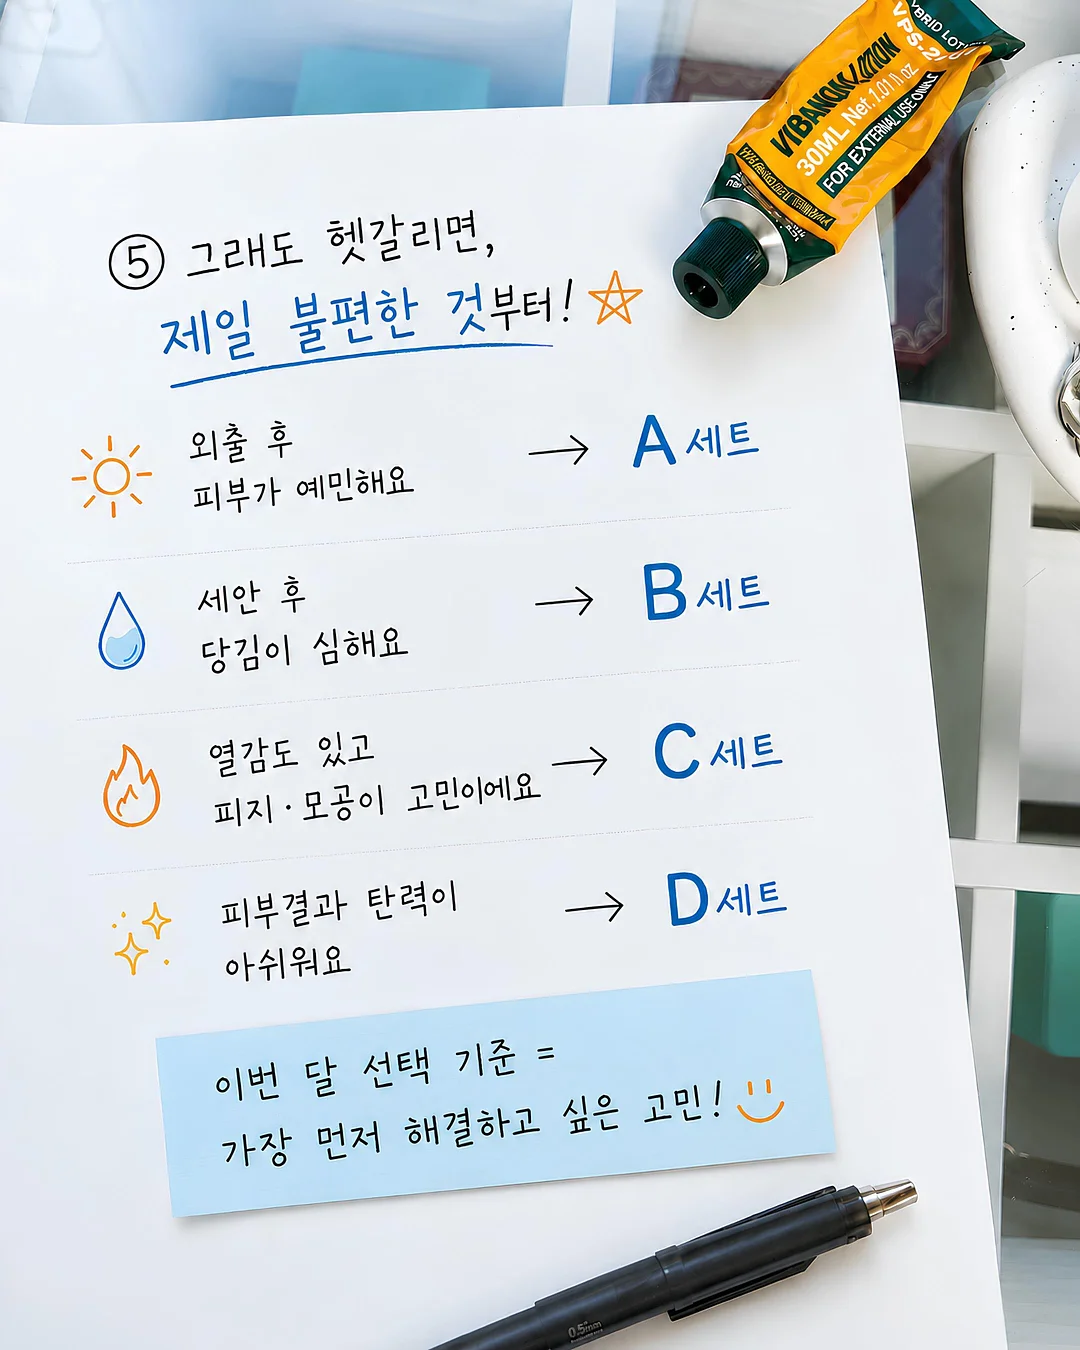 HYBRID LOTION
VIBANOM/MON
30ML Net. 1.01 fl oz
FOR EXTERNAL USE ONLY
⑤ 그래도 헷갈리면,
제일 불편한 것부터!
외출 후
피부가 예민해요
→ A 세트
세안 후
당김이 심해요
→ B 세트
열감도 있고
피지·모공이 고민이에요
→ C 세트
피부결과 탄력이
아쉬워요
→ D 세트
이번 달 선택 기준 =
가장 먼저 해결하고 싶은 고민!
0.5mm